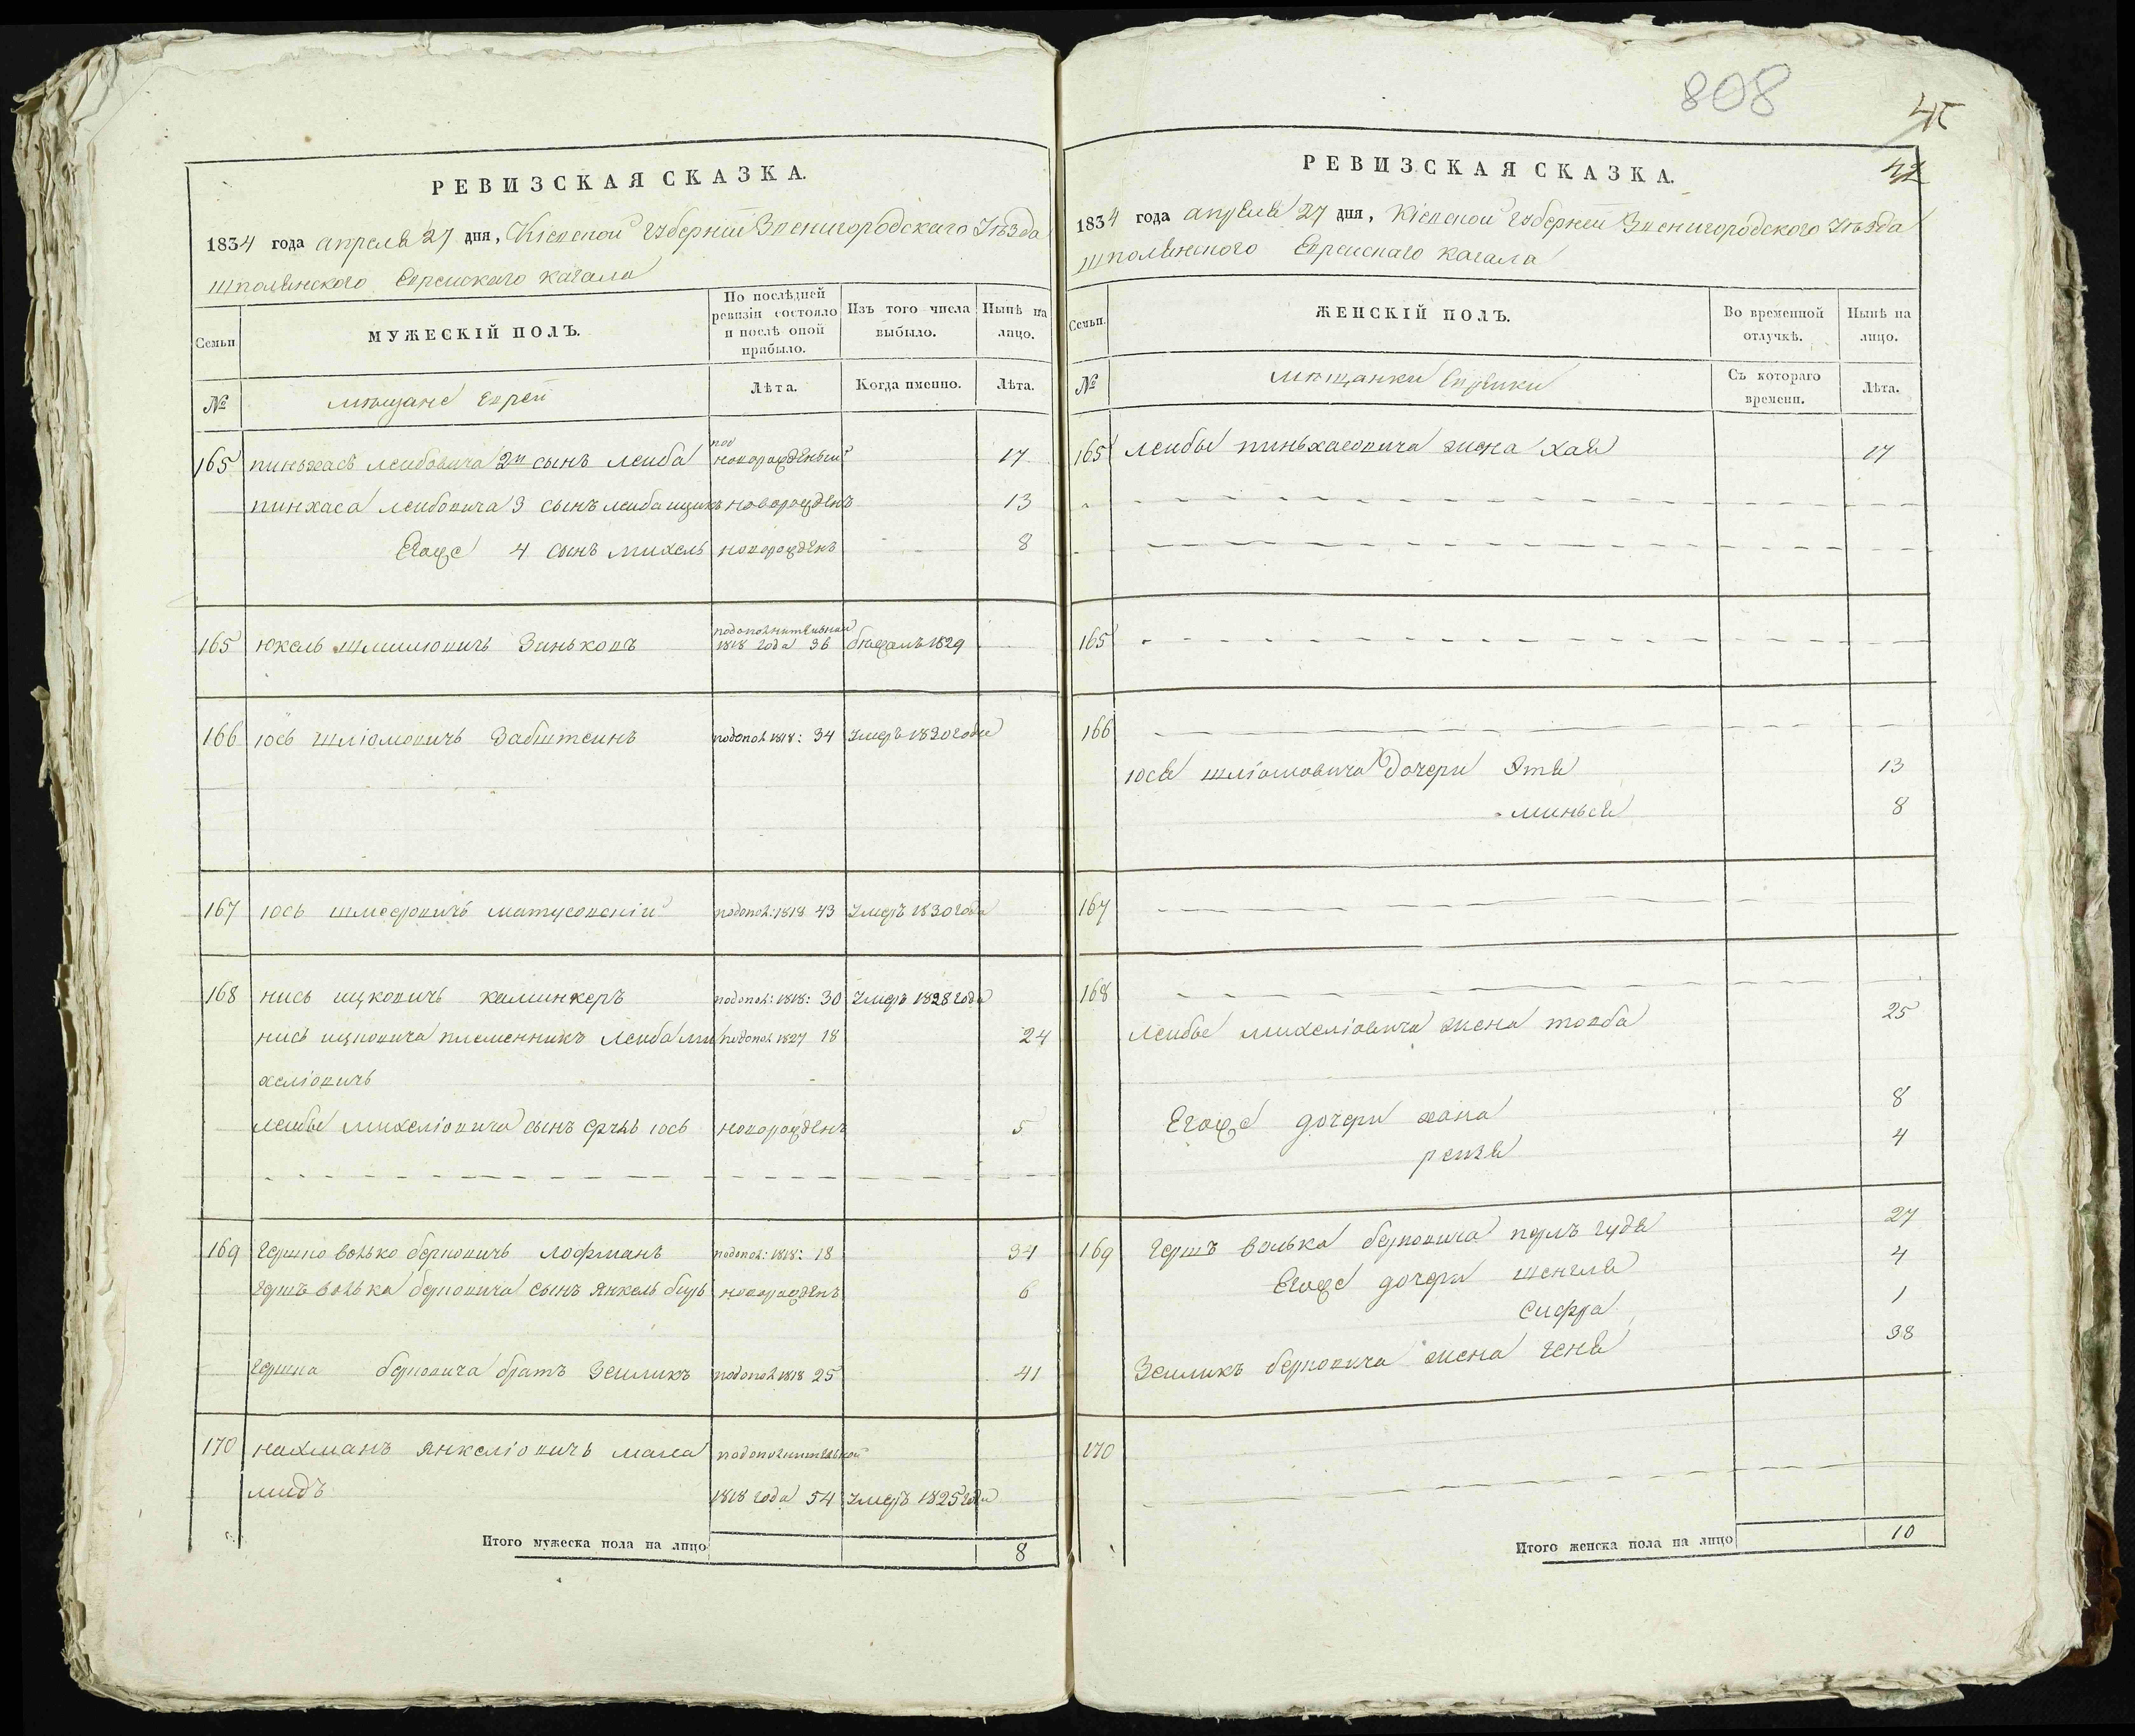 РЕВИЗСКАЯ СКАЗКА.
1834 года апреля 27 дня, Кіевской губерніи Звенигородскаго Уѣзда
шполянского Еврейскаго кагала
Семьи
МУЖЕСКІЙ ПОЛЪ.
По послѣдней ревизіи состояло и послѣ оной прибыло.
Изъ того числа выбыло.
Нынѣ на лицо.
№
мѣщане Евреи
Лѣта.
Когда именно.
Лѣта.
165 пиньхасъ лейбовича 2й сынъ лейба новорожденный 17
пинхаса лейбовича 3 сынъ лейба ицикъ новорожденъ 13
Егоже 4 сынъ михель новорожденъ 8
165 юкель шлиомовичь Зиньковъ подополнительной 1818 года 36 бежалъ 1829
166 юсь шліомовичь Вабштеинъ подопол 1818: 34 Умеръ 1830 года
167 юсь шмееровичь матусовскій подопол: 1818 43 Умеръ 1830 года
168 нись ицковичь каминкеръ подопол: 1818: 30 Умеръ 1828 года
нись ицковича племенникъ лейба ми подопол 1827 18 24
хеліовичь
лейбы михеліовича сынъ сруль юсь новорожденъ 5
169 Гершко волько берковичь лофманъ подопол: 1818: 18 34
Гершъ волька берковича сынъ янкель беръ новорожденъ 6
Гершка берковича братъ Зейликъ подопол 1818 25 41
170 нахманъ янкеліовичь мала подополнительной
мидъ 1818 года 54 Умеръ 1825 года
Итого мужеска пола на лицо 8
808
45
42
РЕВИЗСКАЯ СКАЗКА.
1834 года апреля 27 дня, Кіевской губерніи Звенигородского Уѣзда
шполянского Еврейскаго кагала
Семьи.
ЖЕНСКІЙ ПОЛЪ.
Во временной отлучкѣ.
Нынѣ на лицо.
№
мѣщанки Еврейки
Съ котораго времени.
Лѣта.
165 лейбы пиньхасовича жена хая 17
165
166
юся шліомовича дочери Этя 13
минься 8
167
168
лейбы михеліовича жена товба 25
Егоже дочери хана 8
рейзя 4
169 Гершъ волька берковича гудя 27
Егоже дочери шейгля 4
сифра 1
Зейликъ берковича жена геня 38
170
Итого женска пола на лицо 10